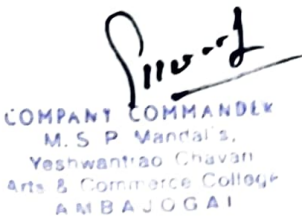 COMPANY COMMANDER
M. S. P. Mandal's,
Yeshwantrao Chavan
Arts & Commerce College
AMBAJOGAI